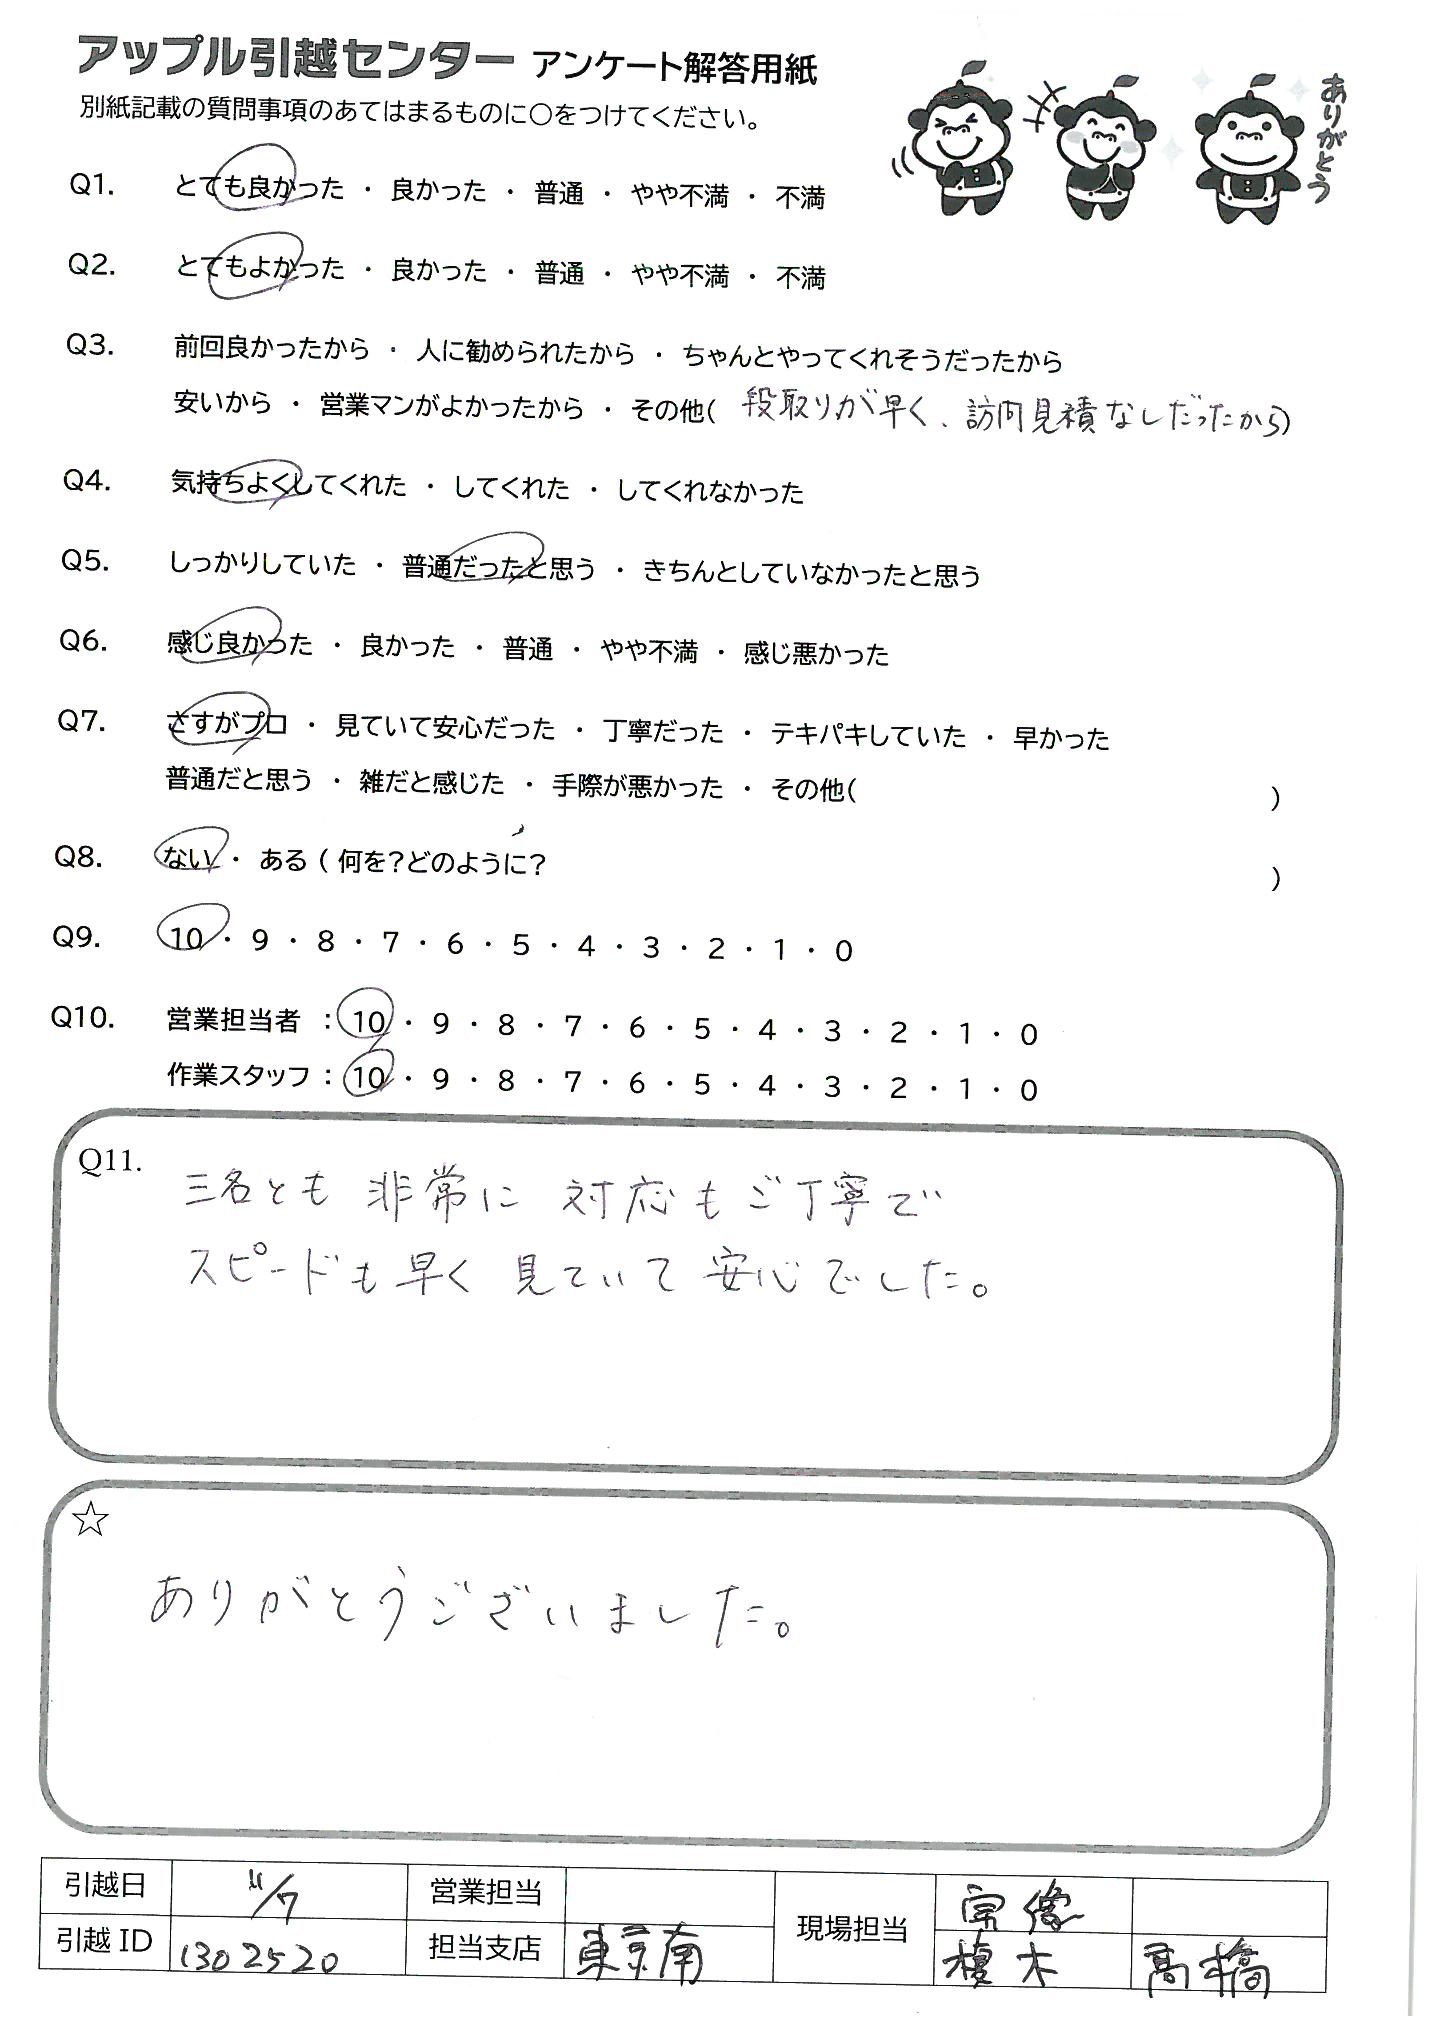 アップル引越センター アンケート解答用紙
別紙記載の質問事項のあてはまるものに○をつけてください。
ありがとう
Q1. とても良かった ・ 良かった ・ 普通 ・ やや不満 ・ 不満
Q2. とてもよかった ・ 良かった ・ 普通 ・ やや不満 ・ 不満
Q3. 前回良かったから ・ 人に勧められたから ・ ちゃんとやってくれそうだったから
安いから ・ 営業マンがよかったから ・ その他( 段取りが早く、訪問見積なしだったから)
Q4. 気持ちよくしてくれた ・ してくれた ・ してくれなかった
Q5. しっかりしていた ・ 普通だったと思う ・ きちんとしていなかったと思う
Q6. 感じ良かった ・ 良かった ・ 普通 ・ やや不満 ・ 感じ悪かった
Q7. さすがプロ ・ 見ていて安心だった ・ 丁寧だった ・ テキパキしていた ・ 早かった
普通だと思う ・ 雑だと感じた ・ 手際が悪かった ・ その他( )
Q8. ない ・ ある ( 何を?どのように? )
Q9. 10 ・ 9 ・ 8 ・ 7 ・ 6 ・ 5 ・ 4 ・ 3 ・ 2 ・ 1 ・ 0
Q10. 営業担当者 : 10 ・ 9 ・ 8 ・ 7 ・ 6 ・ 5 ・ 4 ・ 3 ・ 2 ・ 1 ・ 0
作業スタッフ : 10 ・ 9 ・ 8 ・ 7 ・ 6 ・ 5 ・ 4 ・ 3 ・ 2 ・ 1 ・ 0
Q11. 三名とも 非常に 対応もご丁寧で
スピードも早く 見ていて 安心でした。
☆
ありがとうございました。
引越日 11/7 営業担当 現場担当 宗像
引越 ID 1302520 担当支店 東京南 榎木 髙橋